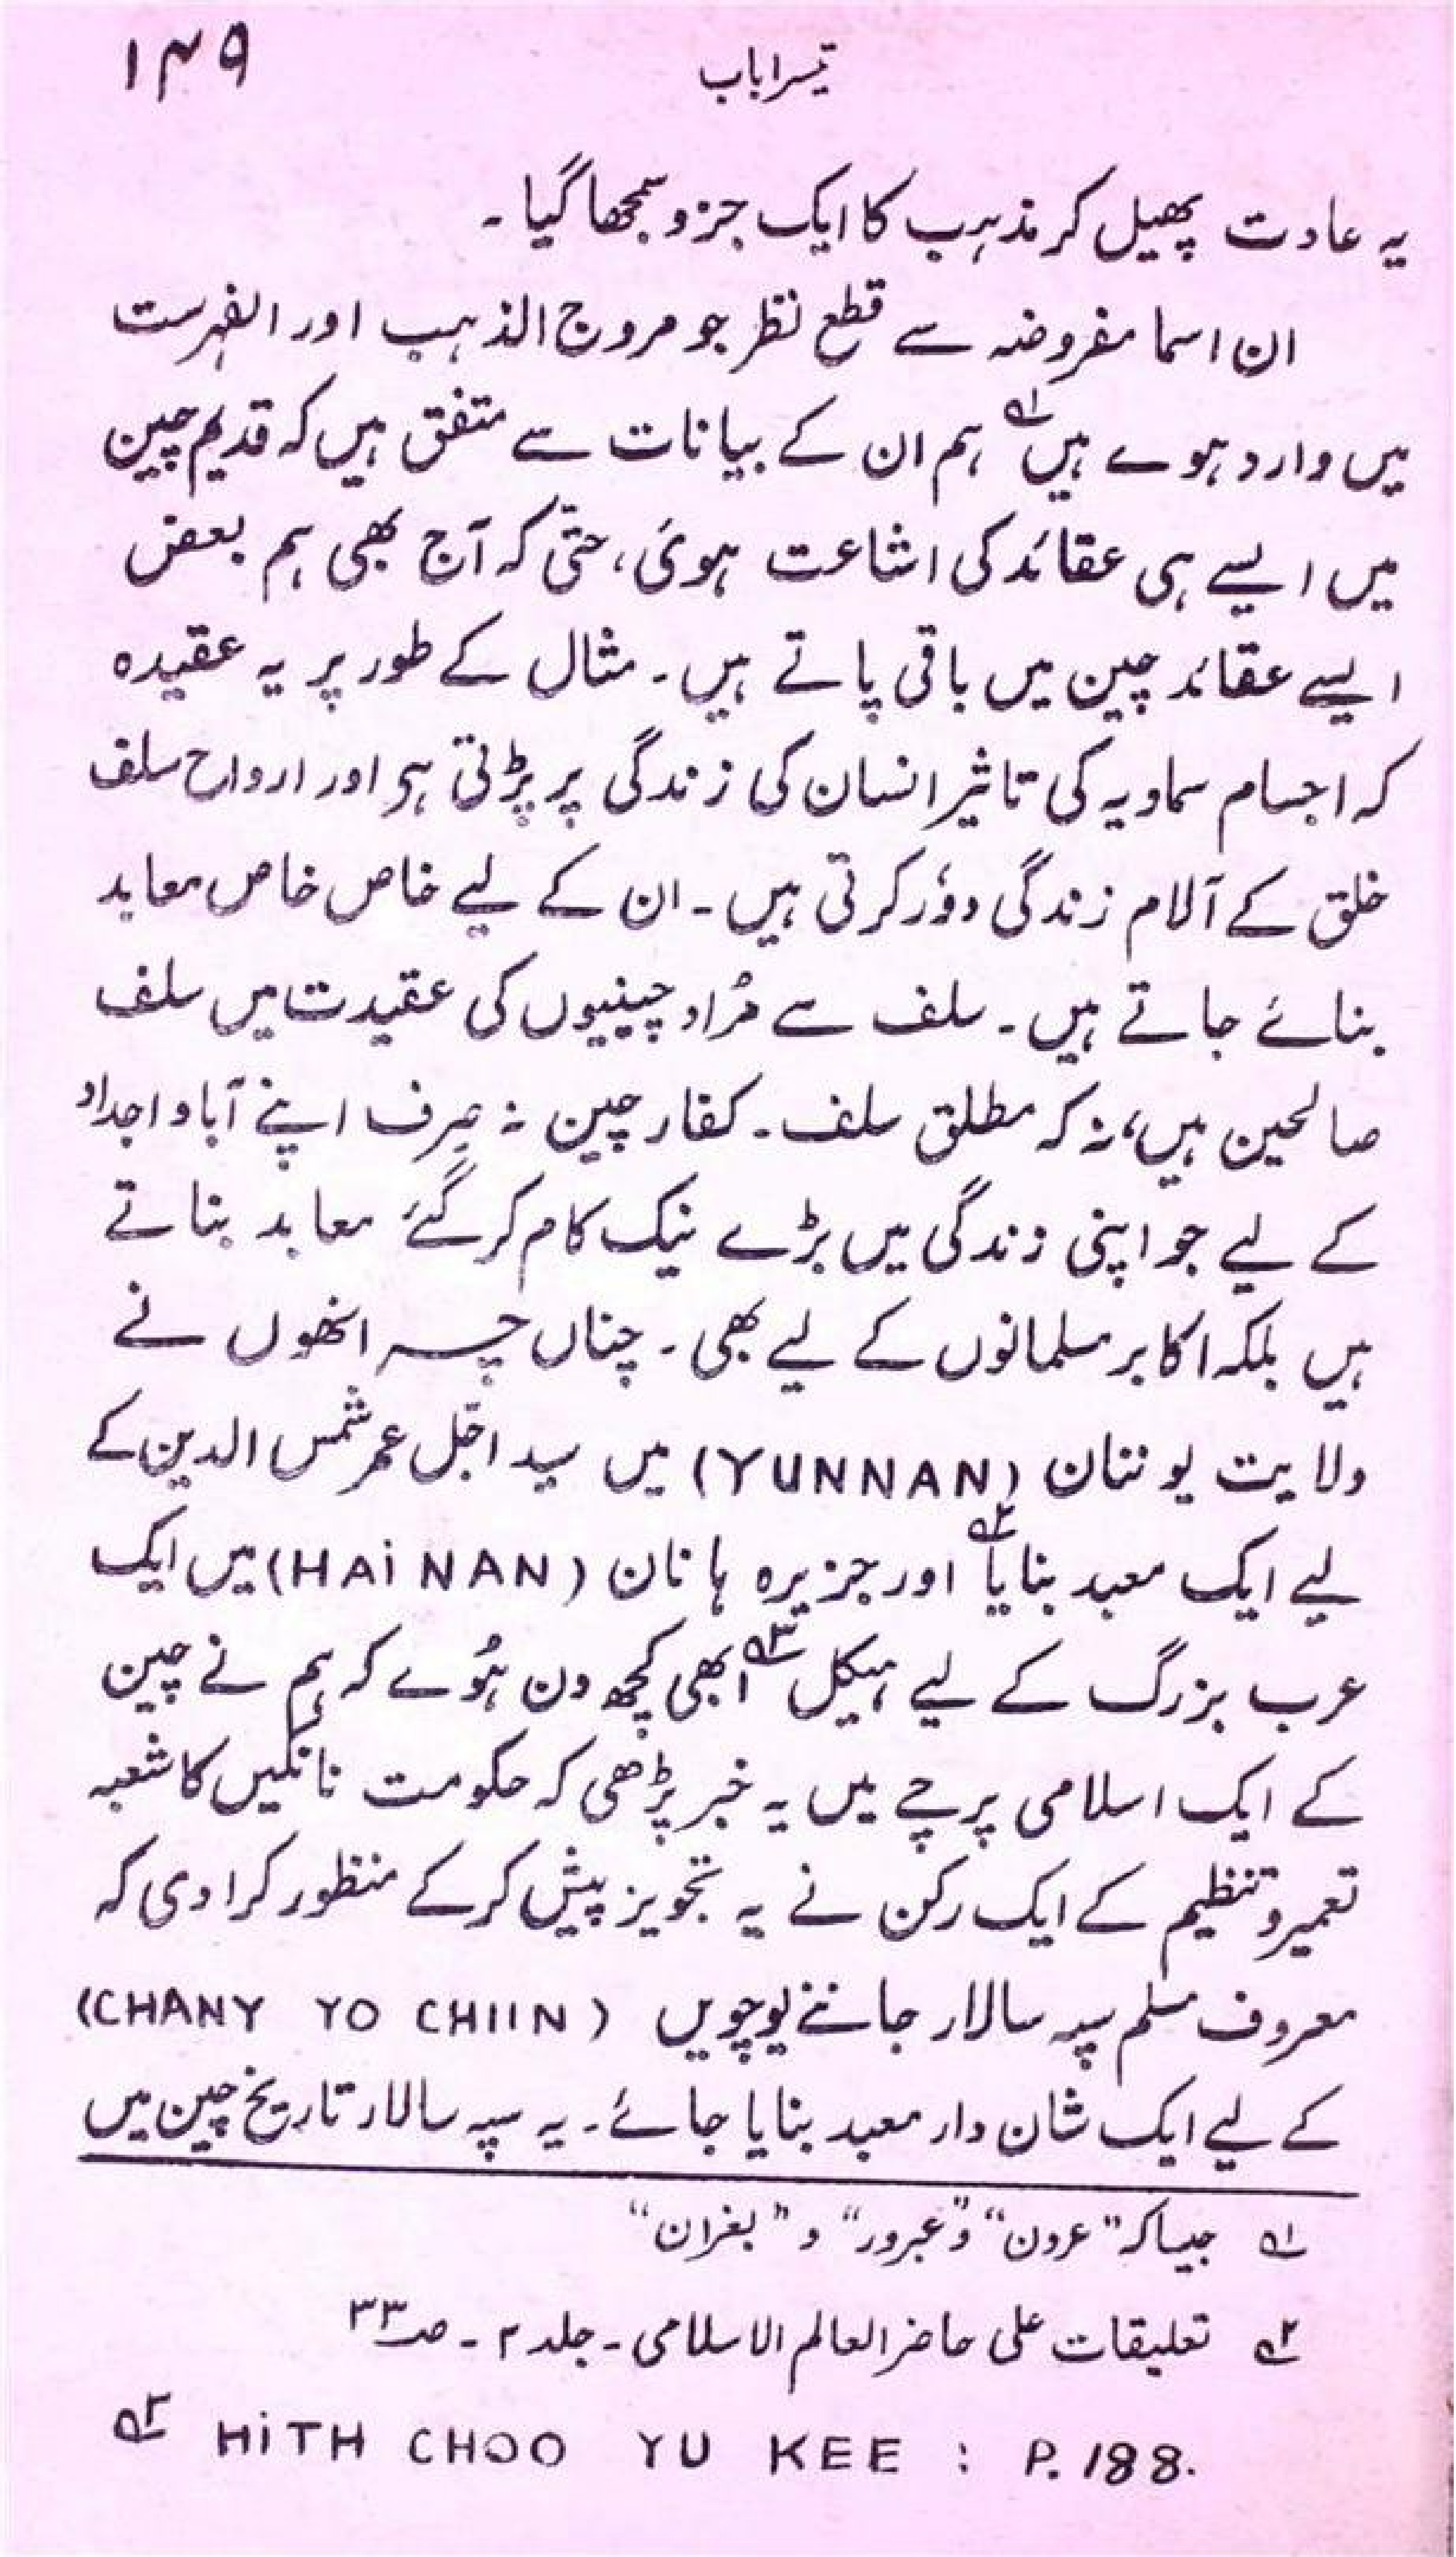 تیسرا باب ۱۴۹
یہ عادت پھیل کر مذہب کا ایک جزو سمجھا گیا ۔
ان اسما مفروضہ سے قطع نظر جو مروج الذہب اور الفہرست
میں وارد ہوے ہیں۱؎ ہم ان کے بیانات سے متفق ہیں کہ قدیم چین
میں ایسے ہی عقائد کی اشاعت ہوئی، حتّٰی کہ آج بھی ہم بعض
ایسے عقائد چین میں باقی پاتے ہیں ۔ مثال کے طور پر یہ عقیدہ
کہ اجسام سماویہ کی تاثیر انسان کی زندگی پر پڑتی ہی اور ارواح سلف
خلق کے آلام زندگی دؤر کرتی ہیں ۔ ان کے لیے خاص خاص معابد
بنائے جاتے ہیں ۔ سلف سے مُراد چینیوں کی عقیدت میں سلف
صالحین ہیں، نہ کہ مطلق سلف ۔ کفار چین نہ صِرف اپنے آبا و اجداد
کے لیے جو اپنی زندگی میں بڑے نیک کام کر گئے معابد بناتے
ہیں بلکہ اکابر مسلمانوں کے لیے بھی ۔ چناں چہ انھوں نے
ولایت یوننان (YUNNAN) میں سید اجّل عمر شمس الدین کے
لیے ایک معبد بنایا۲؎ اور جزیرہ ہانان (HAiNAN) میں ایک
عرب بزرگ کے لیے ہیکل۳؎ ابھی کچھ دن ہُوے کہ ہم نے چین
کے ایک اسلامی پرچے میں یہ خبر پڑھی کہ حکومت نانکیں کا شعبہ
تعمیر و تنظیم کے ایک رکن نے یہ تجویز پیش کر کے منظور کرا دی کہ
معروف مسلم سپہ سالار جاننے یوچویں (CHANY YO CHIIN)
کے لیے ایک شان دار معبد بنایا جائے ۔ یہ سپہ سالار تاریخ چین میں
۱؎ جیسا کہ "عرون" و "عبرور" و "بغران"
۲؎ تعلیقات علی حاضر العالم الاسلامی ۔ جلد ۲ ۔ صـ ۳۳
۳؎ HiTH CHOO YU KEE : P. 188.